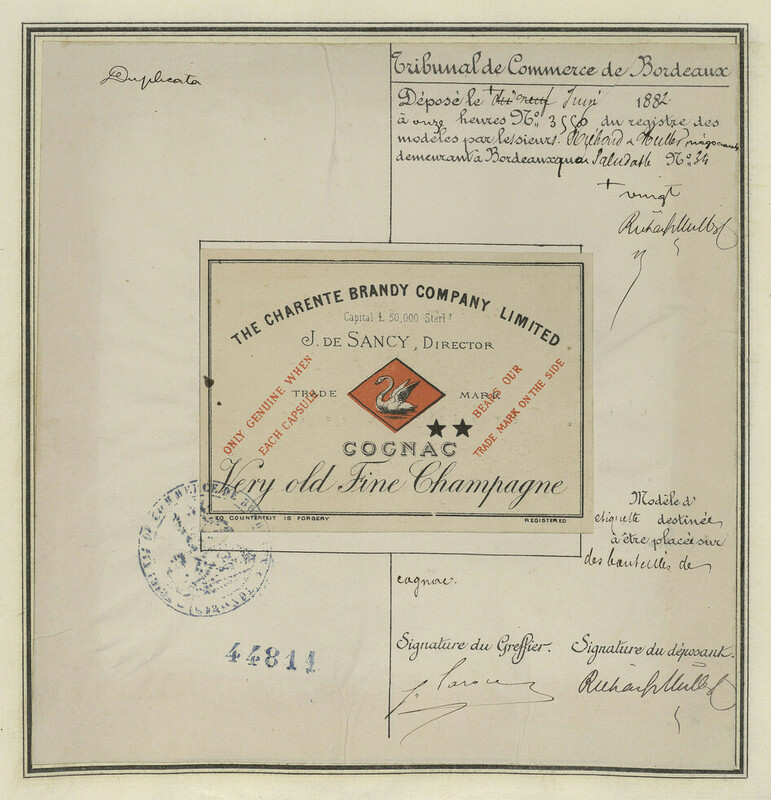 Duplicata
Tribunal de Commerce de Bordeaux
Déposé le + Juin 1882
à onze heures No. 3550 du registre des
modèles par les sieurs Richard & Muller négociants
demeurant à Bordeaux quai Paludate No. 34
+ vingt
Richard & Muller
THE CHARENTE BRANDY COMPANY LIMITED
Capital £ 50,000 Sterlg
J. DE SANCY, DIRECTOR
ONLY GENUINE WHEN
EACH CAPSULE
TRADE MARK
BEARS OUR
TRADE MARK ON THE SIDE
COGNAC
Very old Fine Champagne
TO COUNTERFEIT IS FORGERY
REGISTERED
Modèle d'
étiquette destinée
à être placée sur
des bouteilles de
cognac.
44811
Signature du Greffier. Signature du déposant.
Richard & Muller